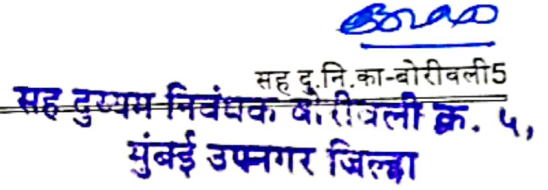 सह दु.नि.का-बोरीवली5
सह दुय्यम निबंधक बोरीवली क्र. ५,
मुंबई उपनगर जिल्हा